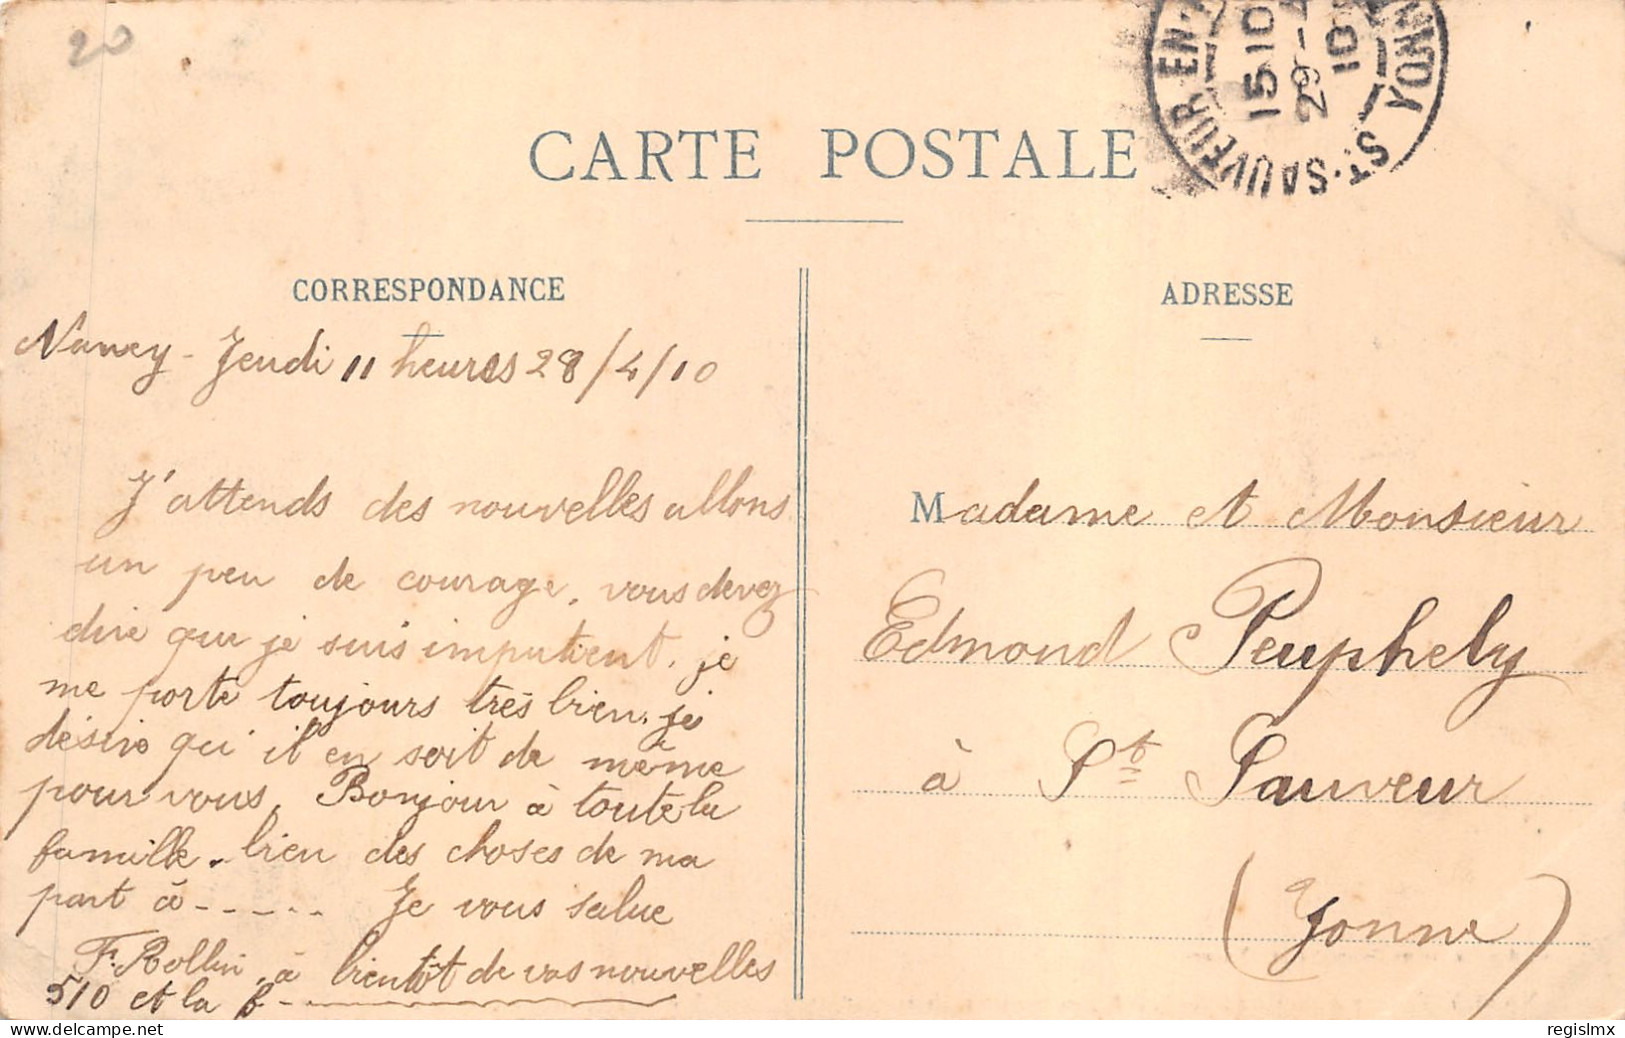 20
ST-SAUVEUR-EN-P
YONN
15-10
29-4
10
CARTE POSTALE
CORRESPONDANCE
Nancy - Jeudi 11 heures 28/4/10
J'attends des nouvelles allons
un peu de courage, vous devez
dire que je suis impatient. je
me porte toujours très bien. je
désire qu'il en soit de même
pour vous. Bonjour à toute la
famille. bien des choses de ma
part à - - - - - Je vous salue
F. Rollin, à bientôt de vos nouvelles
510 et la f-
ADRESSE
Madame et Monsieur
Edmond Peuphely
à St Sauveur
(Yonne)
delcampe.net
regislmx